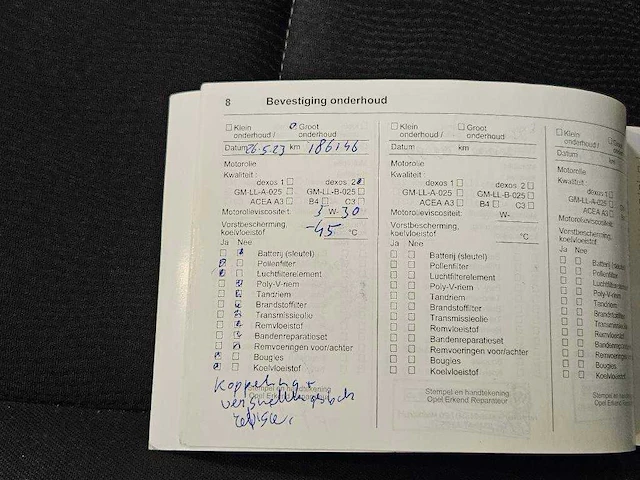 8 Bevestiging onderhoud
Klein onderhoud / Groot onderhoud
Datum 26.5.23 km 186146
Motorolie
Kwaliteit:
dexos 1 dexos 2
GM-LL-A-025 GM-LL-B-025
ACEA A3 B4 C3
Motorolieviscositeit: 5 W- 30
Vorstbescherming,
koelvloeistof -45 °C
Ja Nee
Batterij (sleutel)
Pollenfilter
Luchtfilterelement
Poly-V-riem
Tandriem
Brandstoffilter
Transmissieolie
Remvloeistof
Bandenreparatieset
Remvoeringen voor/achter
Bougies
Koelvloeistof
Stempel en handtekening
Opel Erkend Reparateur
Koppeling +
Klein onderhoud / Groot onderhoud
Datum km
Motorolie
Kwaliteit:
dexos 1 dexos 2
GM-LL-A-025 GM-LL-B-025
ACEA A3 B4 C3
Motorolieviscositeit: W-
Vorstbescherming,
koelvloeistof °C
Ja Nee
Batterij (sleutel)
Pollenfilter
Luchtfilterelement
Poly-V-riem
Tandriem
Brandstoffilter
Transmissieolie
Remvloeistof
Bandenreparatieset
Remvoeringen voor/achter
Bougies
Koelvloeistof
Stempel en handtekening
Opel Erkend Reparateur
Klein onderhoud /
Datum
Motorolie
Kwaliteit:
dexos 1
GM-LL-A-025
ACEA A3
Motorolieviscositeit:
Vorstbescherming,
koelvloeistof
Ja Nee